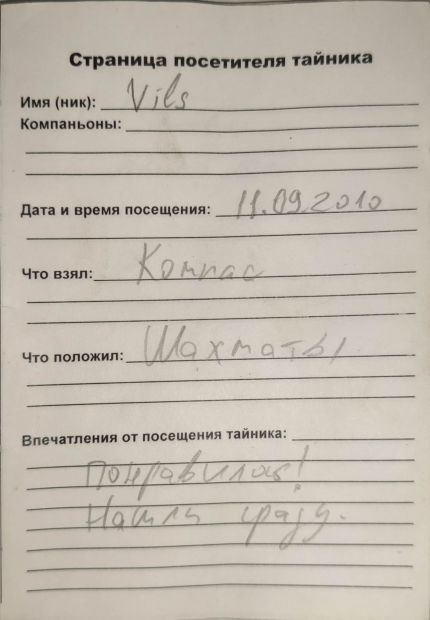 Страница посетителя тайника
Имя (ник): Vils
Компаньоны:
Дата и время посещения: 11.09.2010
Что взял: Компас
Что положил: Шахматы
Впечатления от посещения тайника:
Понравилось!
Нашли сразу.